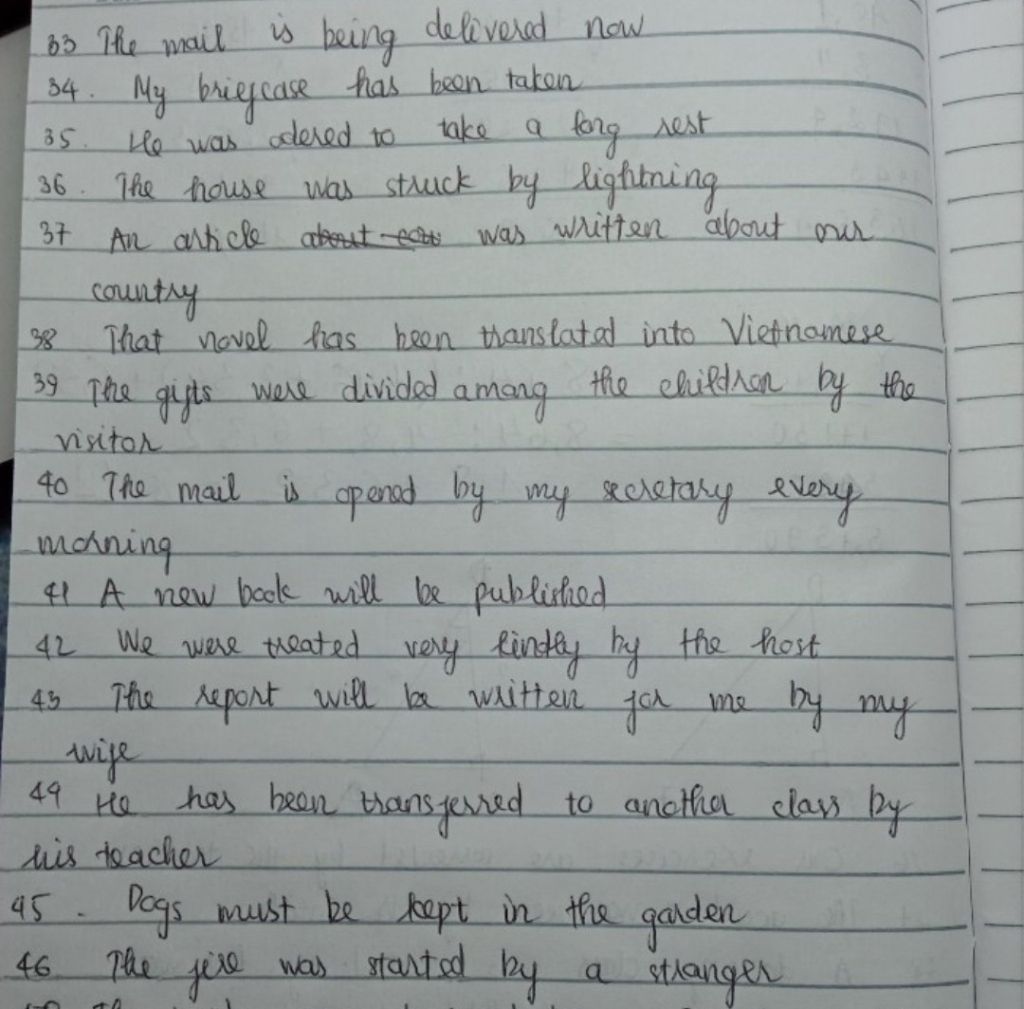 33 The mail is being delivered now
34. My briefcase has been taken
35. He was odered to take a long rest
36. The house was struck by lightning
37 An article about was written about our
country
38 That novel has been translated into Vietnamese
39 The gifts were divided among the children by the
visitor
40 The mail is opened by my secretary every
morning
41 A new book will be published
42 We were treated very kindly by the host
43 The report will be written for me by my
wife
49 He has been transferred to another class by
his teacher
45. Dogs must be kept in the garden
46 The fire was started by a stranger